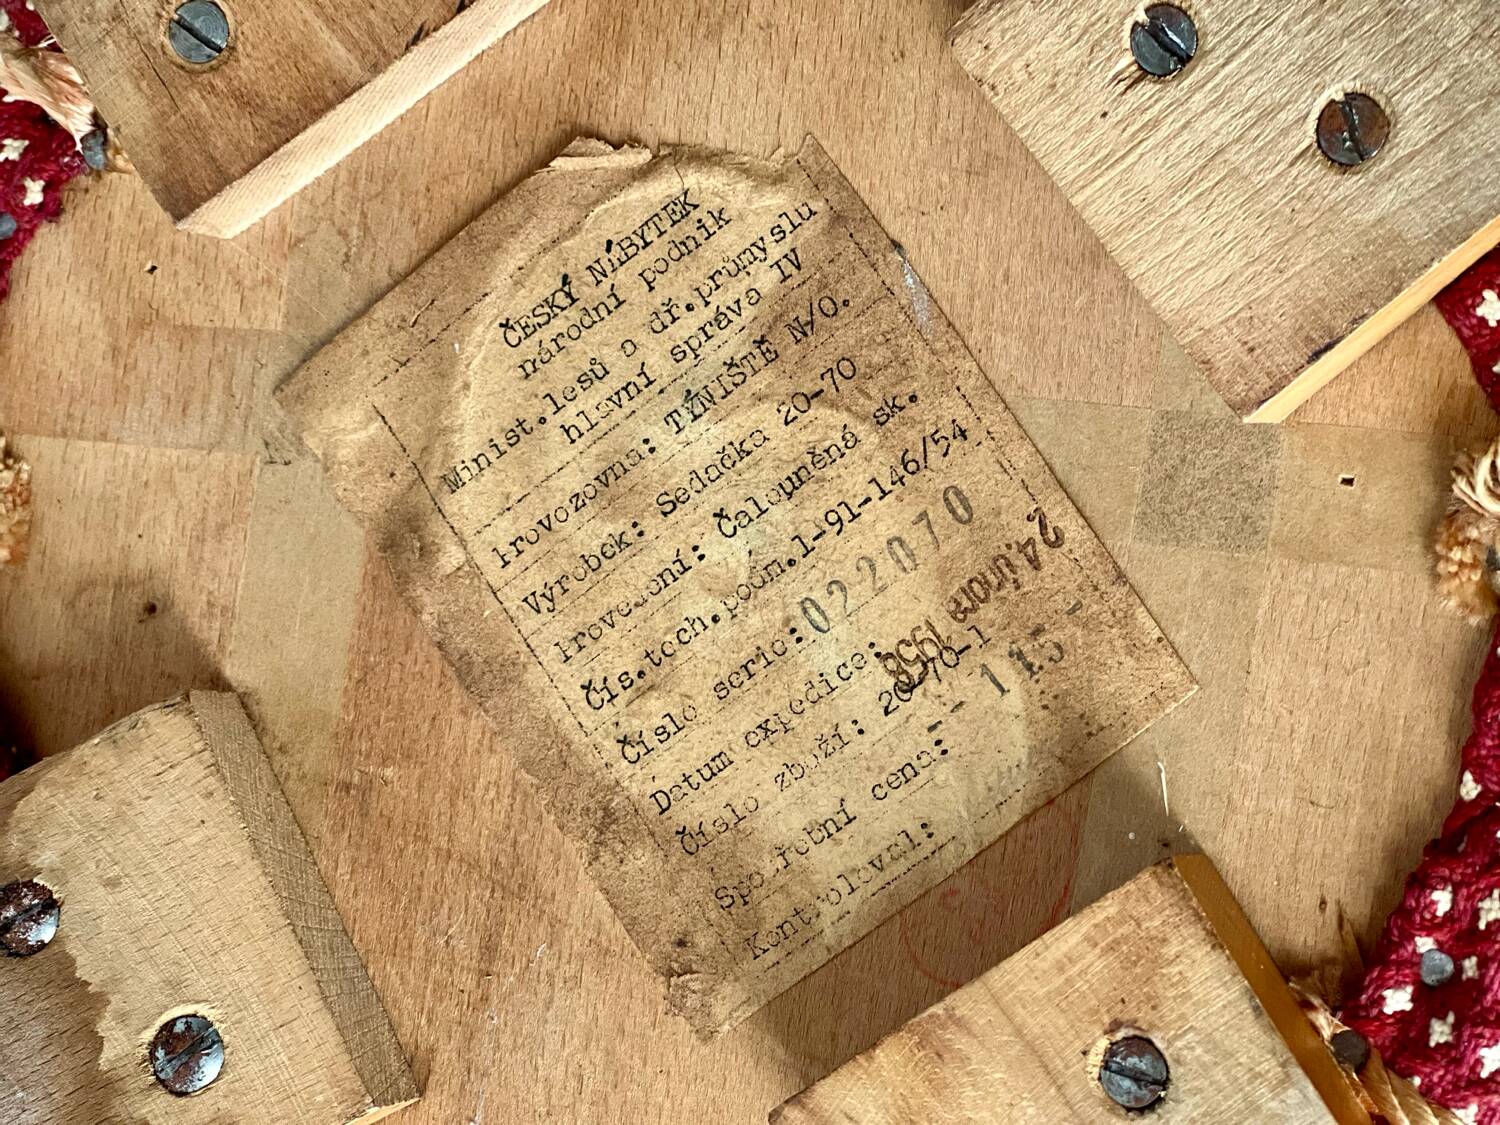 ČESKÝ NÁBYTEK
národní podnik
Minist.lesů a dř.průmyslu
hlavní správa IV
Provozovna: TÝNIŠTĚ N/O.
Výrobek: Sedačka 20-70
Provedení: Čalouněná sk.
Čís.tech.podm.1-91-146/54
Číslo serie: 022070
Datum expedice: 24. února 1958
Číslo zboží: 20-70-1
Spotřební cena: -- 115 -
Kontroloval: